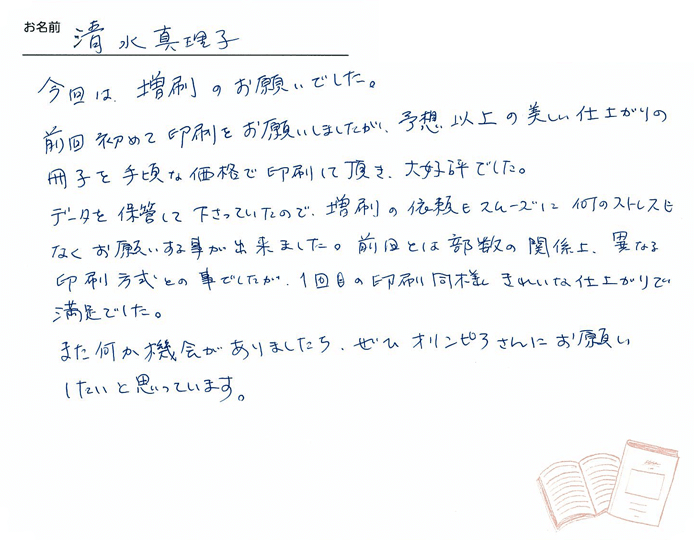 お名前 清水真理子
今回は、増刷のお願いでした。
前回初めて印刷をお願いしましたが、予想以上の美しい仕上がりの
冊子を手頃な価格で印刷して頂き、大好評でした。
データを保管して下さっていたので、増刷の依頼もスムーズに何のストレスも
なくお願いする事が出来ました。前回とは部数の関係上、異なる
印刷方式との事でしたが、1回目の印刷同様にきれいな仕上がりで
満足でした。
また何か機会がありましたら、ぜひオリンピアさんにお願い
したいと思っています。